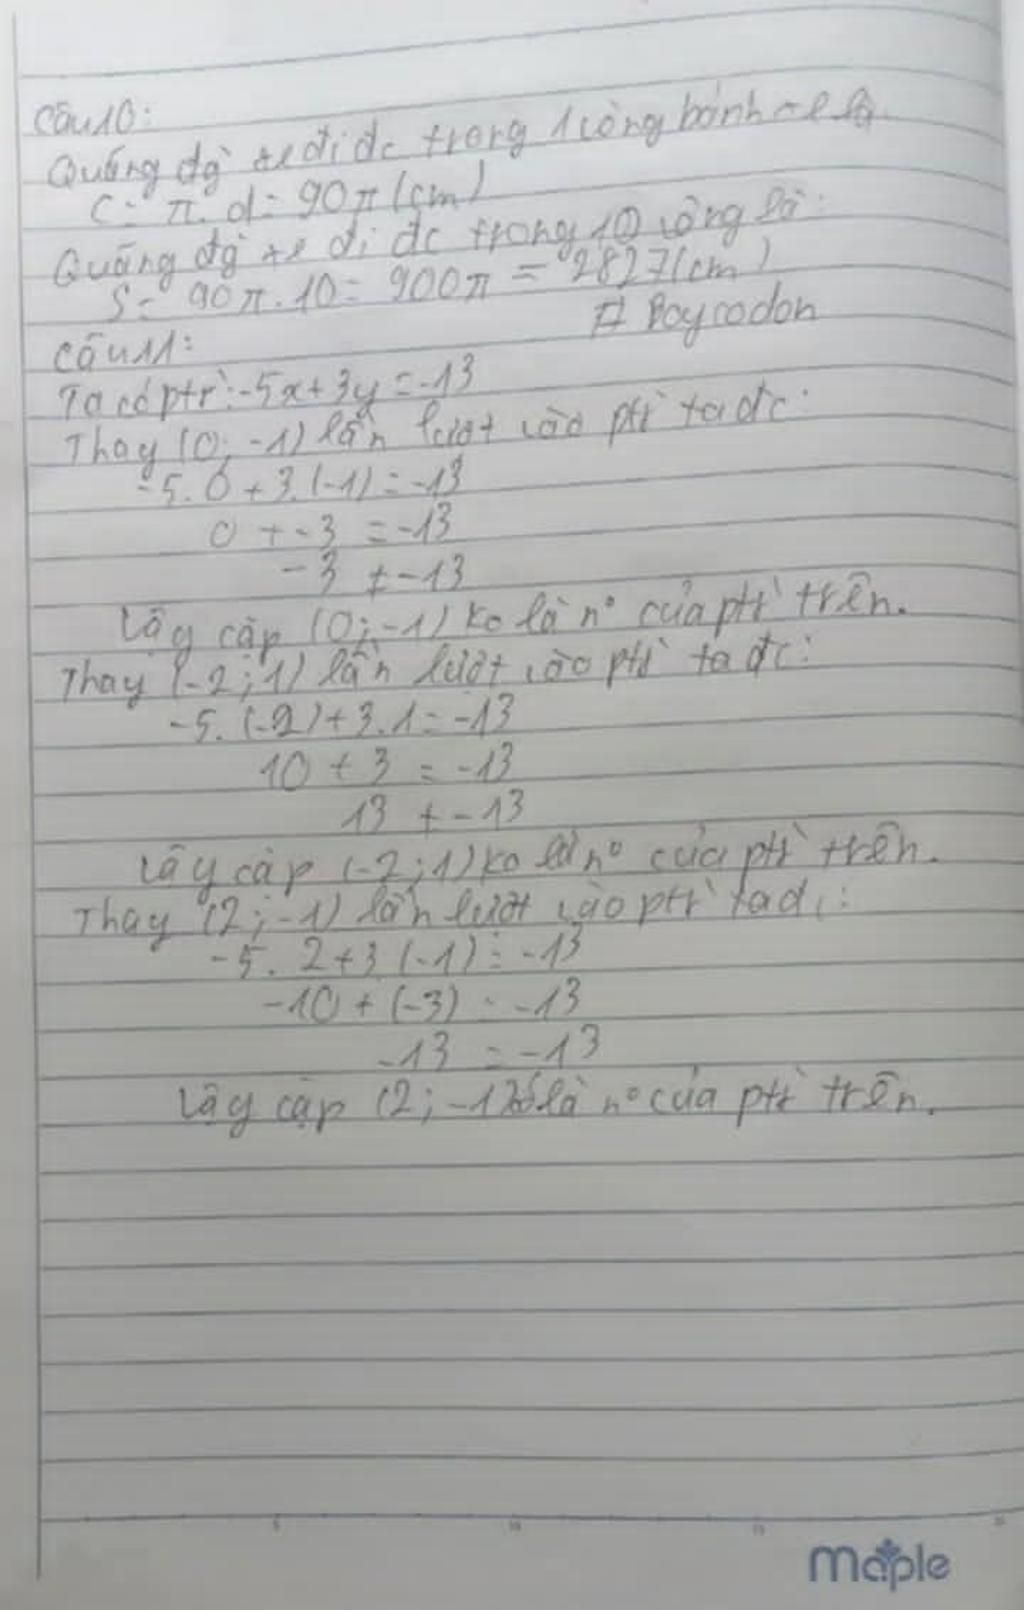 Câu 10:
Quãng đg` xe đi đc trong 1 vòng bánh xe là
C = π. d = 90π (cm)
Quãng đg` xe đi đc trong 10 vòng là:
S = 90π . 10 = 900π = 2827(cm)
# Boycodon
Câu 11:
Ta có ptr`: -5x + 3y = -13
Thay (0; -1) lần lượt vào ptr` ta đc:
-5. 0 + 3. (-1) = -13
0 + -3 = -13
-3 ≠ -13
Vậy cặp (0; -1) ko là n° của ptr` trên.
Thay (-2; 1) lần lượt vào ptr` ta đc:
-5. (-2) + 3. 1 = -13
10 + 3 = -13
13 ≠ -13
Vậy cặp (-2; 1) ko là n° của ptr` trên.
Thay (2; -1) lần lượt vào ptr` ta đc:
-5. 2 + 3 (-1) = -13
-10 + (-3) = -13
-13 = -13
Vậy cặp (2; -1) là n° của ptr` trên.
5 10 15
maple